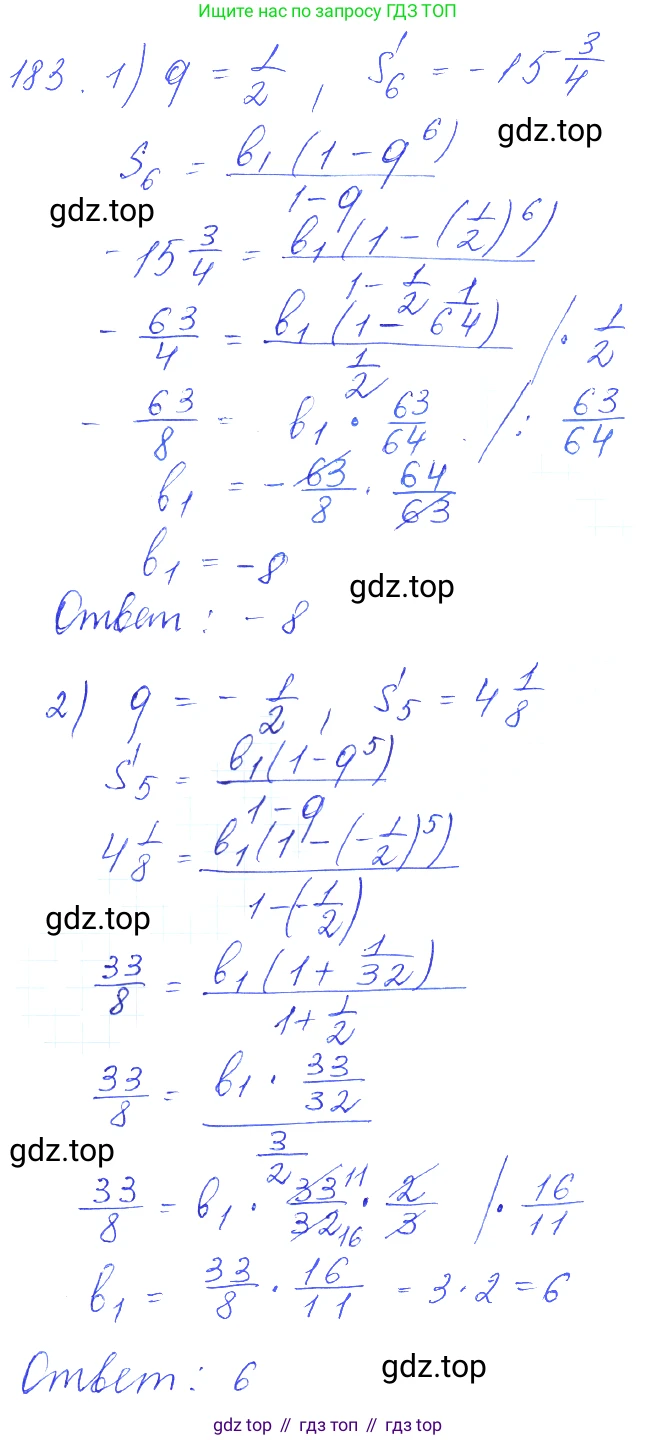 Ищите нас по запросу ГДЗ ТОП
183. 1) q = 1/2, S₆ = -15 3/4
gdz.top
S₆ = b₁(1 - q⁶) / (1 - q)
gdz.top
-15 3/4 = b₁(1 - (1/2)⁶) / (1 - 1/2)
- 63/4 = b₁(1 - 1/64) / (1/2) / · 1/2
- 63/8 = b₁ · 63/64 / : 63/64
b₁ = - 63/8 · 64/63
b₁ = -8
gdz.top
Ответ: -8
2) q = - 1/2, S₅ = 4 1/8
S₅ = b₁(1 - q⁵) / (1 - q)
4 1/8 = b₁(1 - (-1/2)⁵) / (1 - (-1/2))
gdz.top
33/8 = b₁(1 + 1/32) / (1 + 1/2)
33/8 = (b₁ · 33/32) / (3/2)
gdz.top
33/8 = b₁ · 33 11/32 16 · 2/3 / · 16/11
b₁ = 33/8 · 16/11 = 3 · 2 = 6
Ответ: 6
gdz.top
gdz top // гдз топ // gdz top